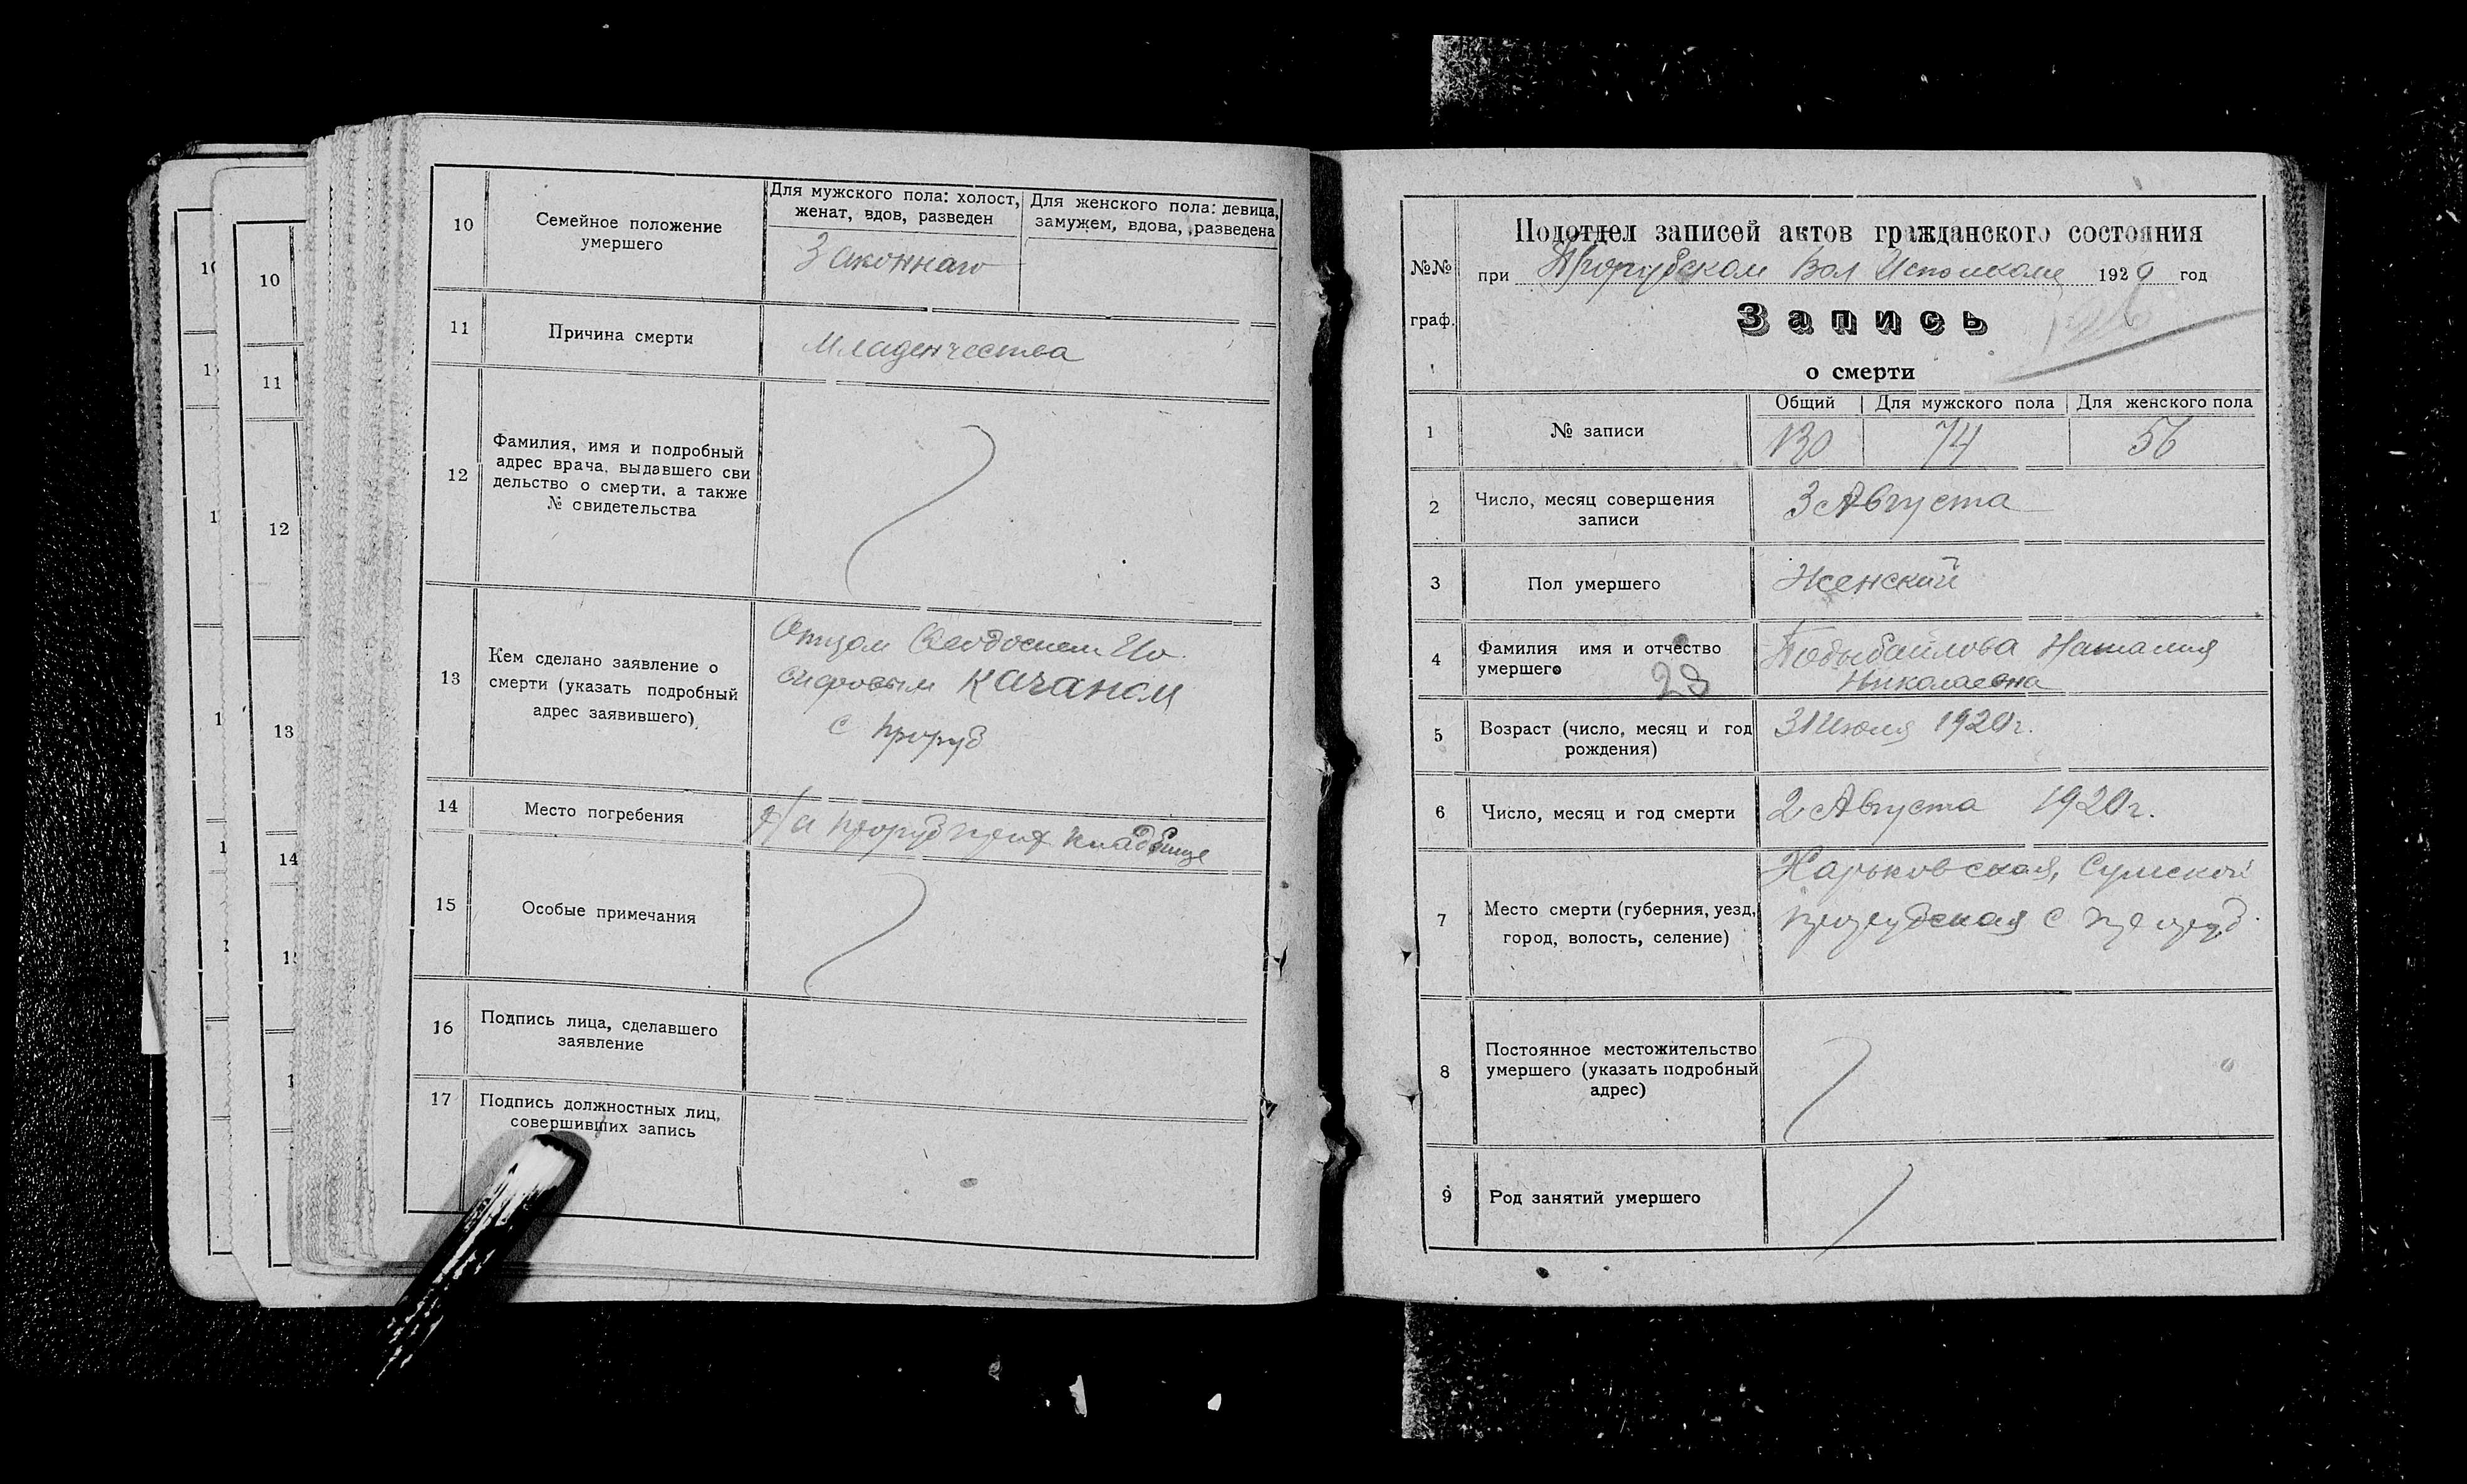 10
Семейное положение
умершего
Для мужского пола: холост,
женат, вдов, разведен
Для женского пола: девица,
замужем, вдова, разведена
Законнаго
11
Причина смерти
Младенчества
12
Фамилия, имя и подробный
адрес врача, выдавшего сви
дельство о смерти, а также
№ свидетельства
13
Кем сделано заявление о
смерти (указать подробный
адрес заявившего)
Отцом Феодосием Ио
сифовым Качаном
с Проруб
14
Место погребения
На кладбище
15
Особые примечания
16
Подпись лица, сделавшего
заявление
17
Подпись должностных лиц,
совершивших запись
10
11
12
13
14
№№
граф.
Подотдел записей актов гражданского состояния
при Прорубском Вол Исполкоме 1920 год
Запись
о смерти
1
№ записи
Общий
Для мужского пола
Для женского пола
130
74
56
2
Число, месяц совершения
записи
3 Августа
3
Пол умершего
Женский
4
Фамилия имя и отчество
умершего
23
Наталия
Николаевна
5
Возраст (число, месяц и год
рождения)
31 Июля 1920 г.
6
Число, месяц и год смерти
2 Августа 1920 г.
7
Место смерти (губерния, уезд,
город, волость, селение)
Харьковская, Сумской
Прорубская с Проруб
8
Постоянное местожительство
умершего (указать подробный
адрес)
9
Род занятий умершего